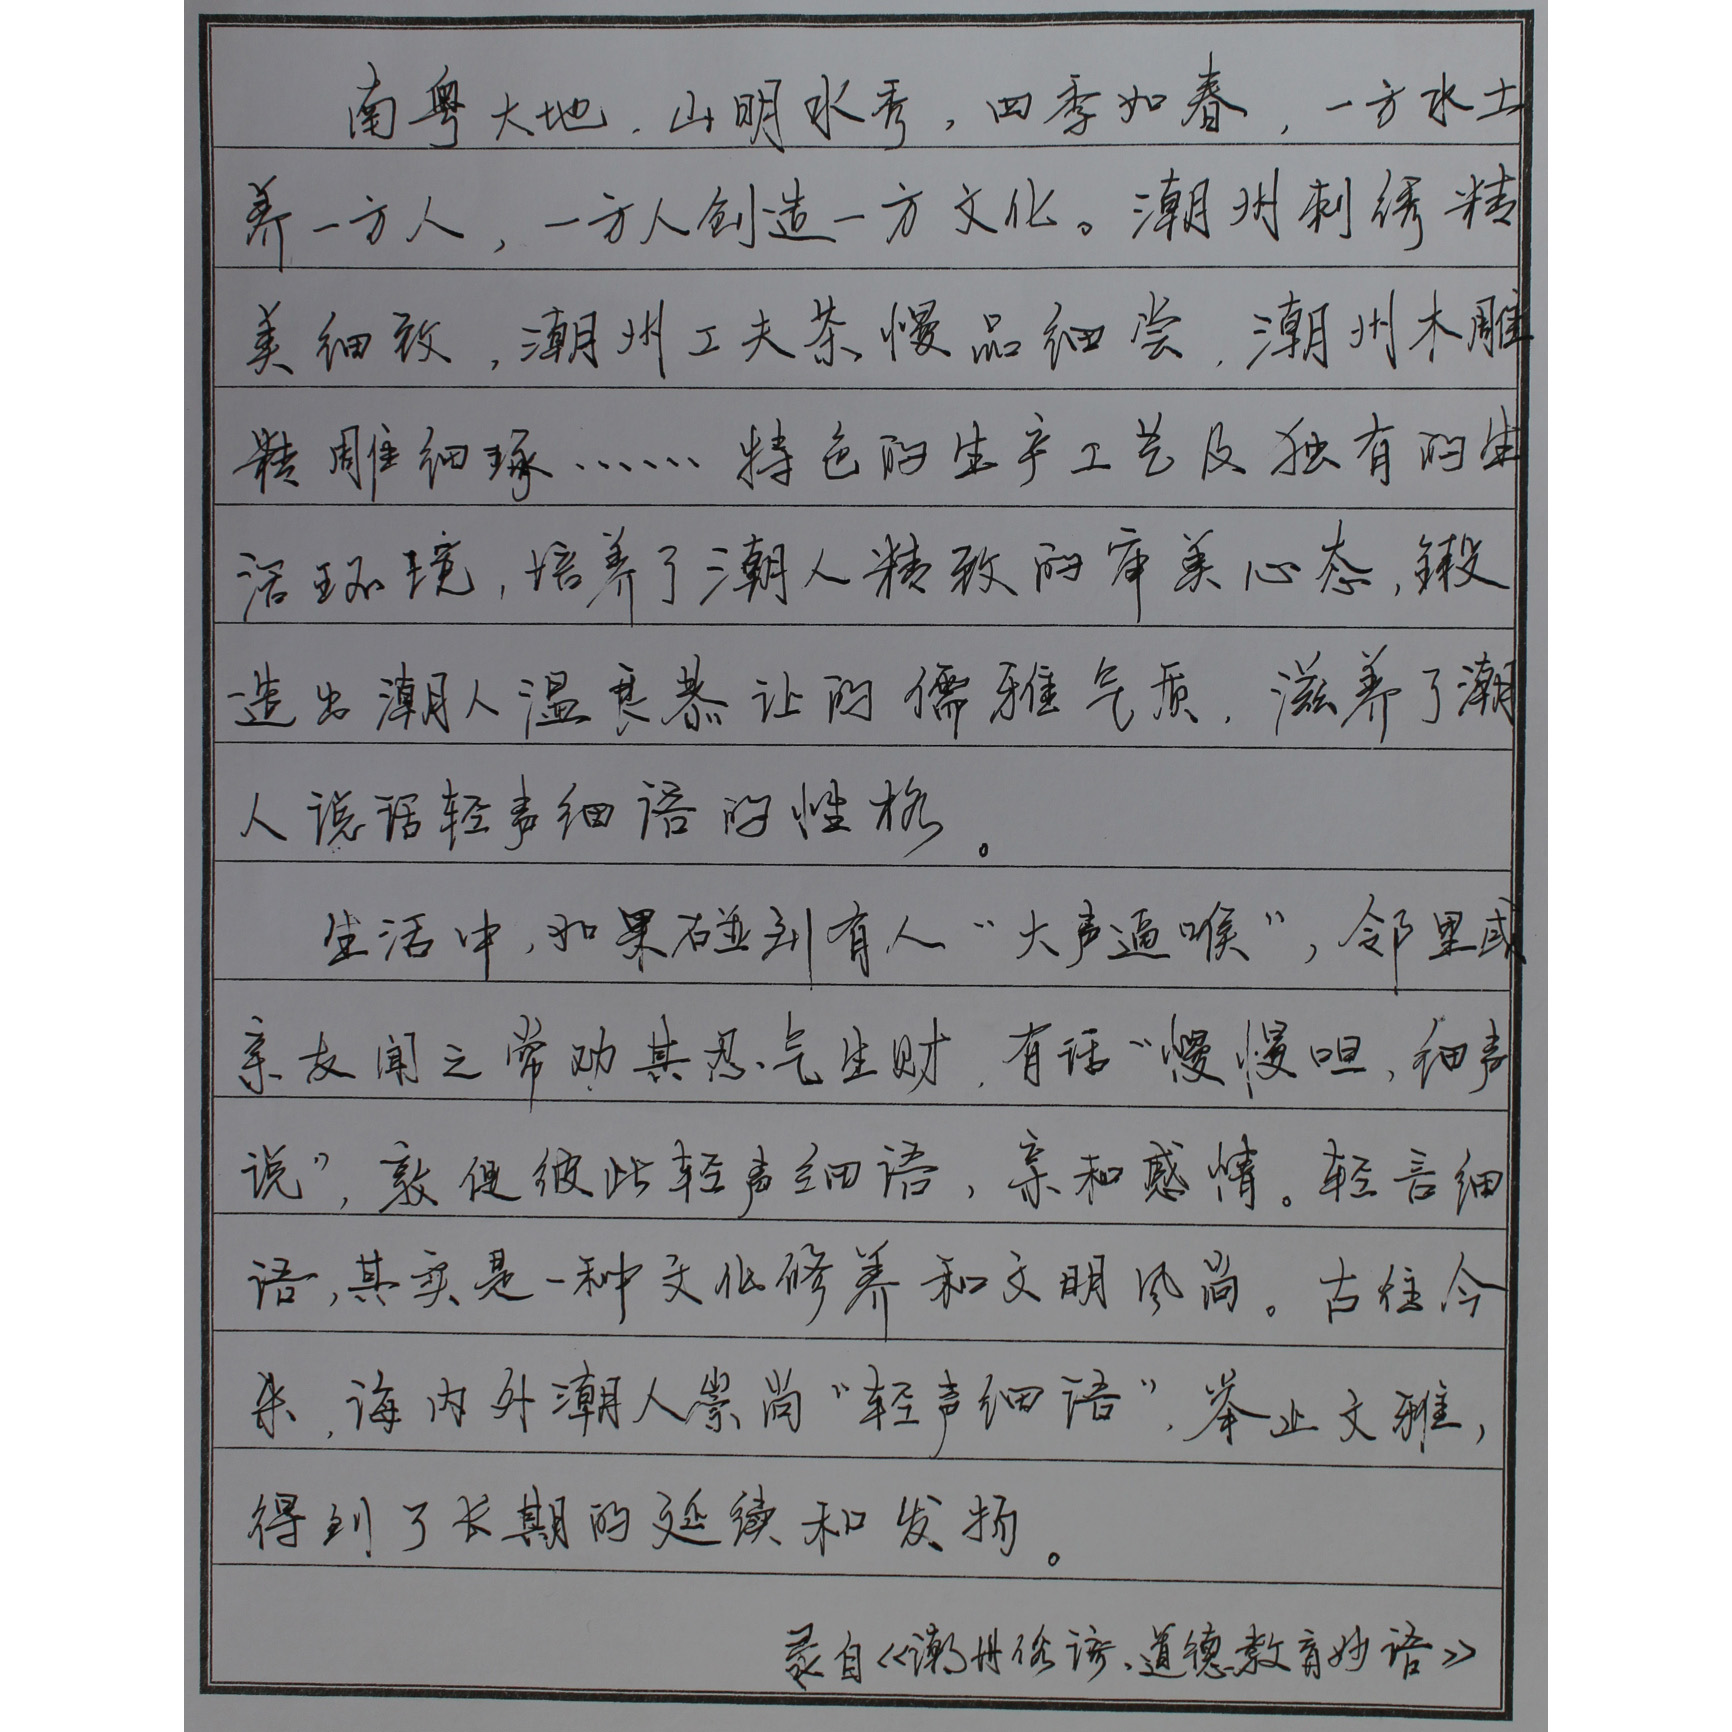 南粤大地，山明水秀，四季如春，一方水土
养一方人，一方人创造一方文化。潮州刺绣精
美细致，潮州工夫茶慢品细尝，潮州木雕
精雕细琢……特色的生产工艺及独有的生
活环境，培养了潮人精致的审美心态，锻
造出潮人温良恭让的儒雅气质，滋养了潮
人说话轻声细语的性格。
生活中，如果碰到有人“大声逼喉”，邻里或
亲友闻之常劝其忍气生财，有话“慢慢呾，细声
说”，敦促彼此轻声细语，亲和感情。轻言细
语，其实是一种文化修养和文明风尚。古往今
来，海内外潮人崇尚“轻声细语”，举止文雅，
得到了长期的延续和发扬。
录自《潮州俗谚、道德教育妙语》